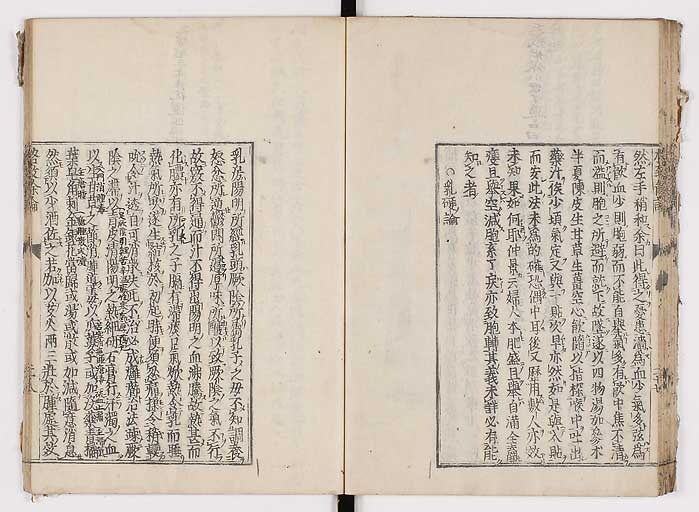 然左手稍和余曰此得之憂患澷為血少氣多弦為
有飲血少則胞弱而不能自舉氣多有飲中焦不清
而溢則胞之所避而就下故墜遂以四物湯加參朮
半夏陳皮生甘草生薑空心飲隨以指探喉中吐出
藥汁俟少頃氣定又與一貼次早亦然如是與八貼
而安此法未為的確恐偶中耳後又歷用數人亦效
未知果如何耶仲景云婦人本肥盛且舉自滿全羸
瘦且舉空減胞系了戾亦致胞轉其義未詳必有能
知之者
○乳硬論
乳房陽明所經乳頭厥陰所屬乳子之母不知調養
怒忿所逆鬱悶所遏厚味所釀以致厥陰之氣不行
故竅不得通而汁不得出陽明之血沸騰故熱甚而
化膿亦有所乳之子膈有滯痰口氣焮熱含乳而睡
熱氣所吹遂生結核於初起時便須忍痛揉令稍軟
吮令汁透自可消散失此不治必成癰癤治法疎厥
陰之滯以青皮清陽明之熱細研石膏行汙濁之血
以生甘草之節消腫導毒以瓜蔞子或加沒藥青橘
葉皂角刺金銀花當歸或湯或散或加減隨意消息
然須以少酒佐之若加以艾火兩三壯於腫處其效